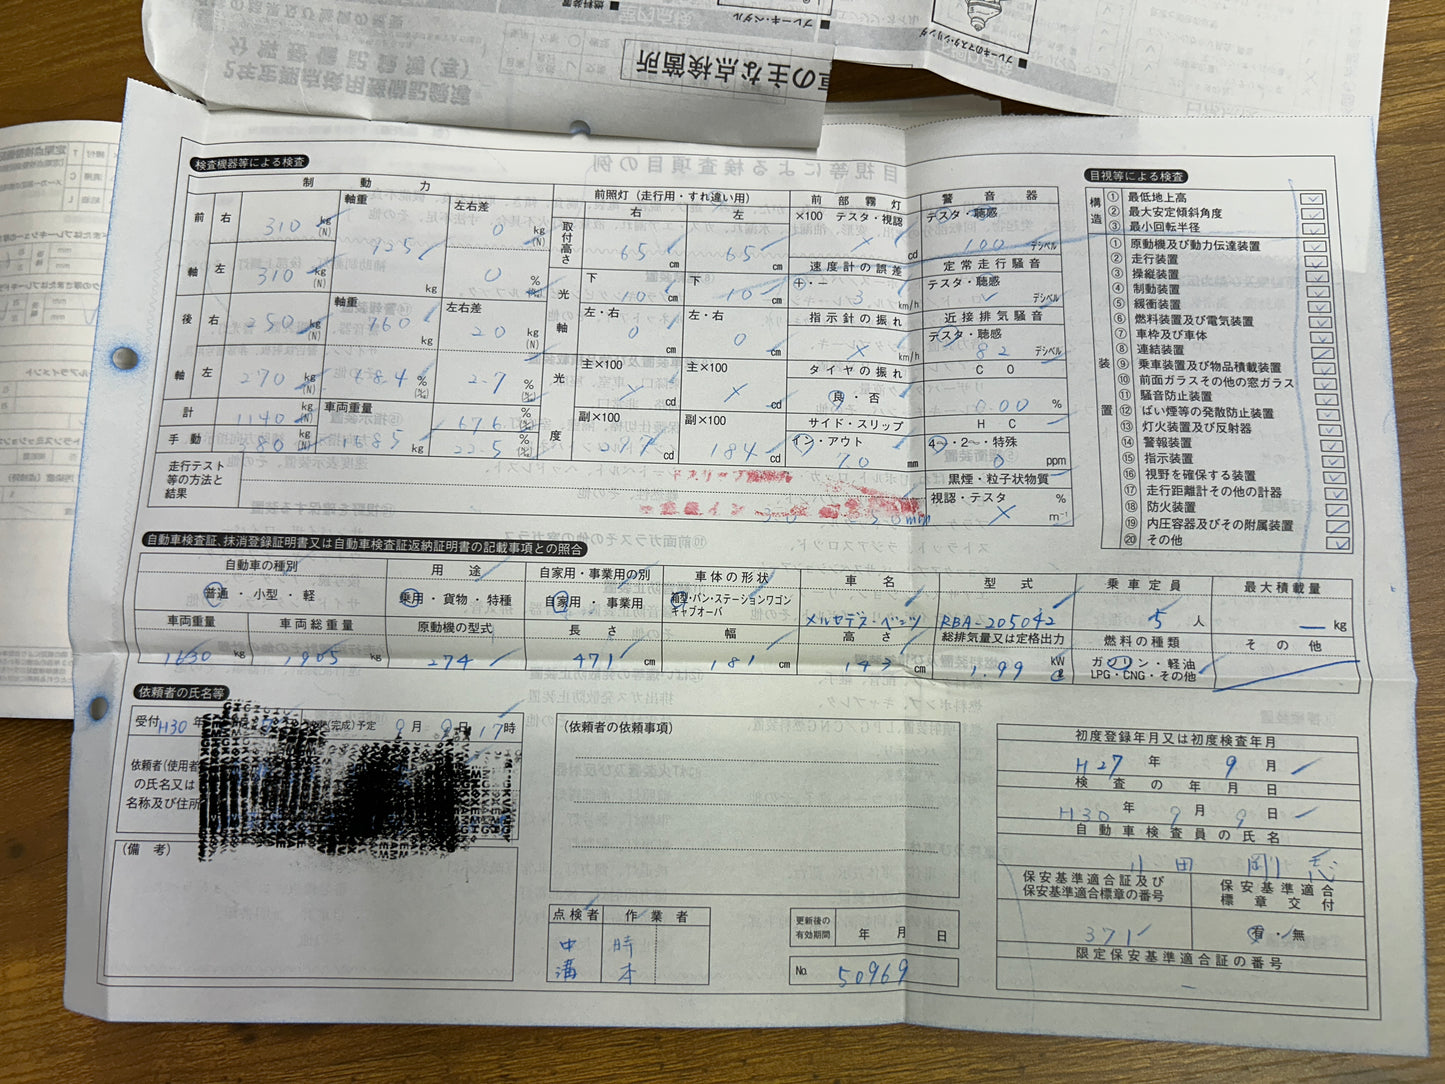 の主な点検箇所
ブレーキ・ペダル
ブレーキのマスタ・シリンダ
検査機器等による検査
制動力
前軸 右 310 kg(N)
左 310 kg(N)
軸重 925 kg
左右差 0 kg(N)
0 %
後軸 右 250 kg(N)
左 270 kg(N)
軸重 760 kg
68.4 %
左右差 20 kg(N)
2.7 %
計 1140 kg(N)
車両重量 1685 kg
67.6 %
手動 380 kg(N)
22.5 %
走行テスト等の方法と結果
前照灯(走行用・すれ違い用)
右 左
取付高さ 65 cm 65 cm
光軸 下 10 cm 下 10 cm
左・右 0 cm 左・右 0 cm
光度 主×100 × cd 主×100 × cd
副×100 cd 副×100 184 cd
前部霧灯
×100 テスタ・視認
× cd
速度計の誤差
+・− 3 km/h
指示針の振れ
× km/h
タイヤの振れ
良・否
サイド・スリップ
イン・アウト
7.0 mm
警音器
テスタ・聴感
100 デシベル
定常走行騒音
テスタ・聴感
✓ デシベル
近接排気騒音
テスタ・聴感
82 デシベル
CO
0.00 %
HC
4・2・特殊
0 ppm
黒煙・粒子状物質
視認・テスタ %
× m⁻¹
目視等による検査
構造
① 最低地上高 ✓
② 最大安定傾斜角度 ✓
③ 最小回転半径 ✓
装置
① 原動機及び動力伝達装置 ✓
② 走行装置 ✓
③ 操縦装置 ✓
④ 制動装置 ✓
⑤ 緩衝装置 ✓
⑥ 燃料装置及び電気装置 ✓
⑦ 車枠及び車体 ✓
⑧ 連結装置 ✓
⑨ 乗車装置及び物品積載装置 ✓
⑩ 前面ガラスその他の窓ガラス ✓
⑪ 騒音防止装置 ✓
⑫ ばい煙等の発散防止装置 ✓
⑬ 灯火装置及び反射器 ✓
⑭ 警報装置 ✓
⑮ 指示装置 ✓
⑯ 視野を確保する装置 ✓
⑰ 走行距離計その他の計器 ✓
⑱ 防火装置 ✓
⑲ 内圧容器及びその附属装置 ✓
⑳ その他 ✓
自動車検査証、抹消登録証明書又は自動車検査証返納証明書の記載事項との照合
自動車の種別 用途 自家用・事業用の別 車体の形状 車名 型式 乗車定員 最大積載量
普通・小型・軽 乗用・貨物・特種 自家用・事業用 箱型・バン・ステーションワゴン キャブオーバ メルセデス・ベンツ RBA-205042 5 人 — kg
車両重量 車両総重量 原動機の型式 長さ 幅 高さ 総排気量又は定格出力 燃料の種類 その他
1630 kg 1905 kg 274 471 cm 181 cm 143 cm 1.99 kW ガソリン・軽油 LPG・CNG・その他
依頼者の氏名等
受付 H30 年
(完成)予定 9 月 9 日 17 時
依頼者(使用者)
の氏名又は
名称及び住所
(備考)
(依頼者の依頼事項)
点検者 作業者
中溝 時本
更新後の有効期間 年 月 日
No. 50969
初度登録年月又は初度検査年月
H27 年 9 月
検査の年月日
H30 年 9 月 9 日
自動車検査員の氏名
小田 剛志
保安基準適合証及び保安基準適合標章の番号
保安基準適合標章交付
371
有・無
限定保安基準適合証の番号
—